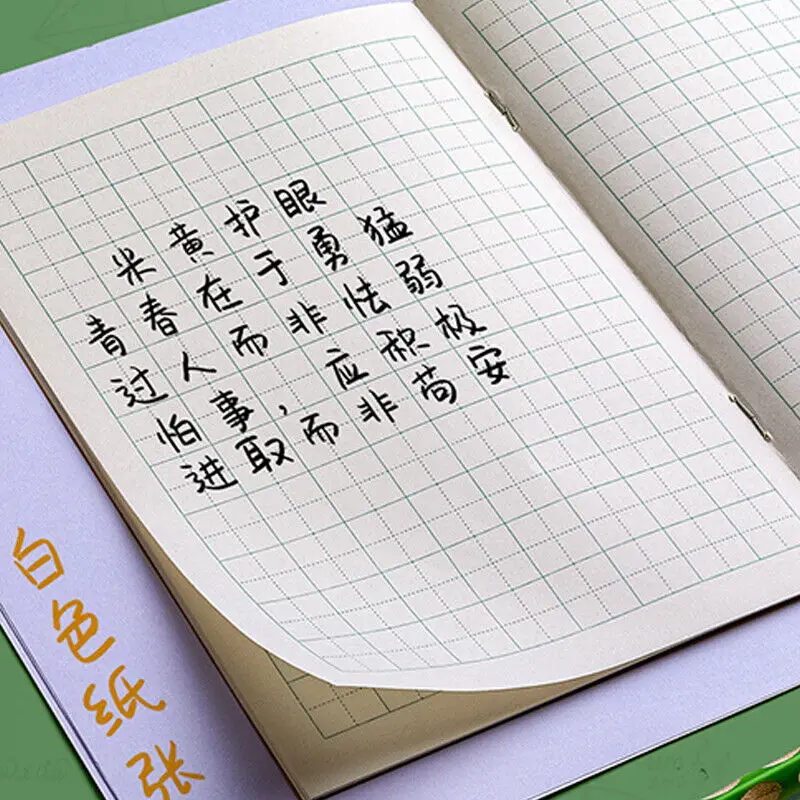 米黄护眼
青春在于勇猛
过人而非怯弱
怕事，应积极
进取而非苟安
白色纸张